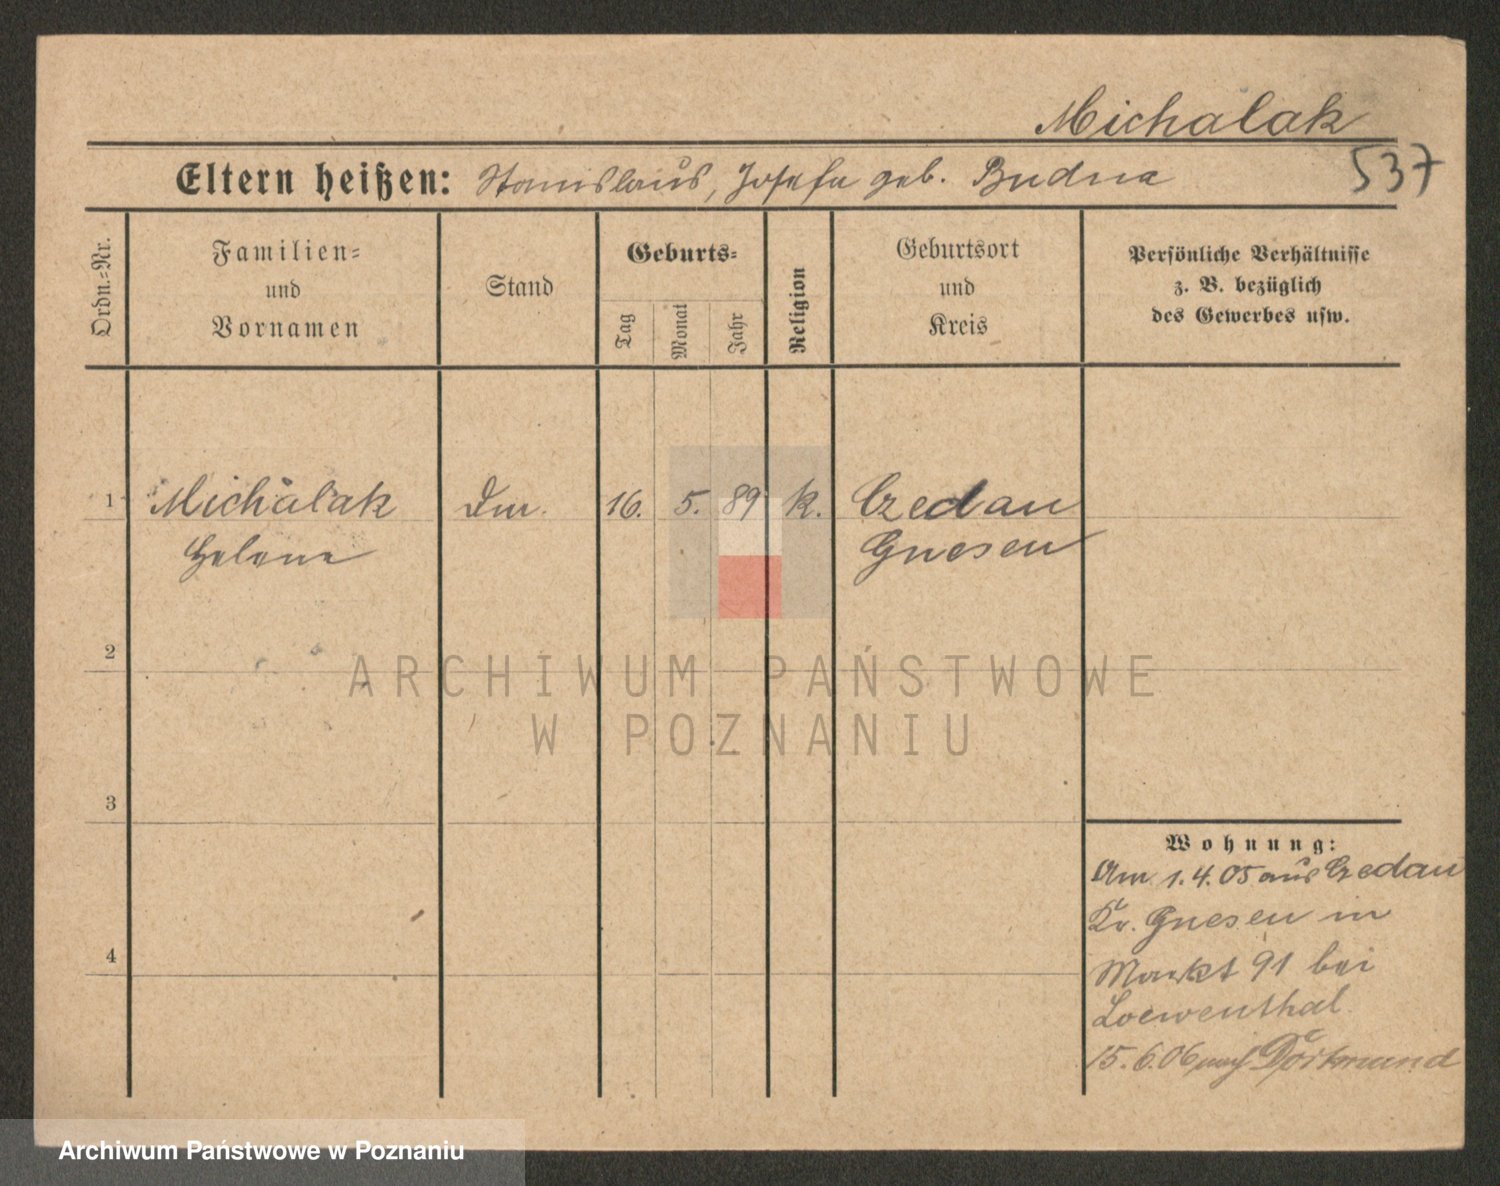 Michalak
Eltern heißen: Stanislaus, Josefa geb. Budna
537
Ordn.-Nr.
Familien-
und
Vornamen
Stand
Geburts-
Tag
Monat
Jahr
Religion
Geburtsort
und
Kreis
Persönliche Verhältnisse
z. B. bezüglich
des Gewerbes usw.
1 Michalak 16. 5. 89 k. Czedau
Helene Gnesen
2
3
4
Wohnung:
Am 1.4.05 aus Czedau
Kr. Gnesen in
Markt 91 bei
Loewenthal
15.6.06 nach Dortmund
ARCHIWUM PAŃSTWOWE
W POZNANIU
Archiwum Państwowe w Poznaniu